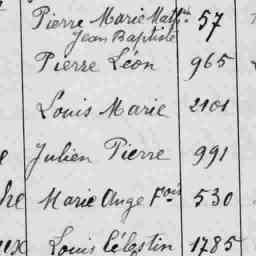 Pierre Marie Math^in 57
Jean Baptiste
Pierre Léon 965
Louis Marie 2101
Julien Pierre 991
Marie Ange F^ois 530
Louis Célestin 1785